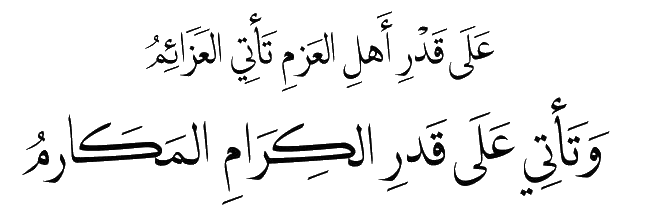 عَلَى قَدْرِ أَهلِ العَزمِ تَأتِي العَزَائِمُ
وَتَأتِي عَلَى قَدرِ الكِرَامِ المَكَارمُ